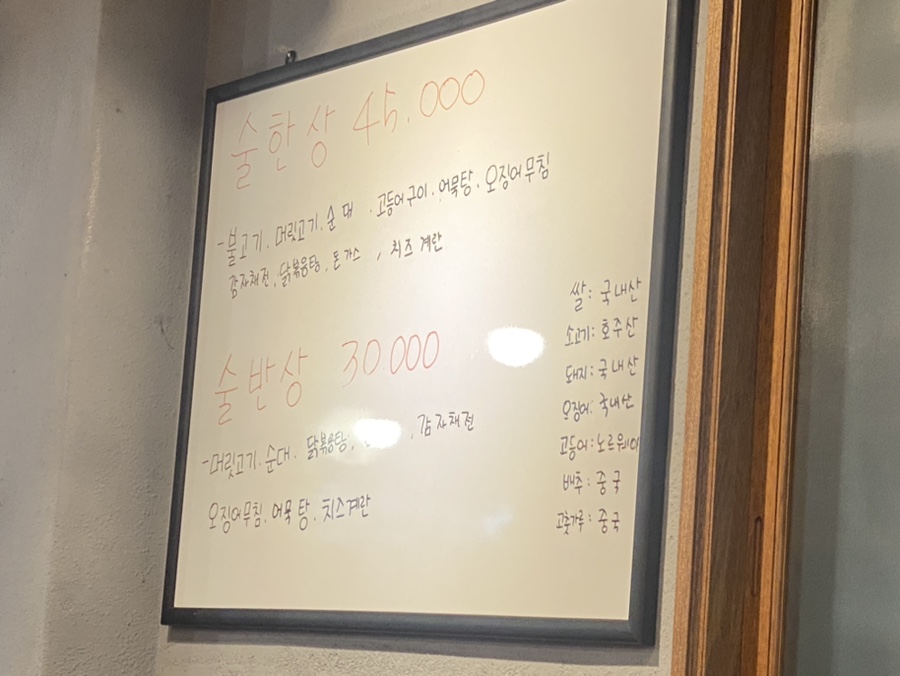 술한상 45.000
-불고기. 머릿고기. 순대. 고등어구이. 어묵탕. 오징어무침
감자채전. 닭볶음탕. 돈가스, 치즈계란
술반상 30.000
-머릿고기. 순대. 닭볶음탕, , 감자채전
오징어무침. 어묵탕. 치즈계란
쌀: 국내산
소고기: 호주산
돼지: 국내산
오징어: 국내산
고등어: 노르웨이
배추: 중국
고춧가루: 중국